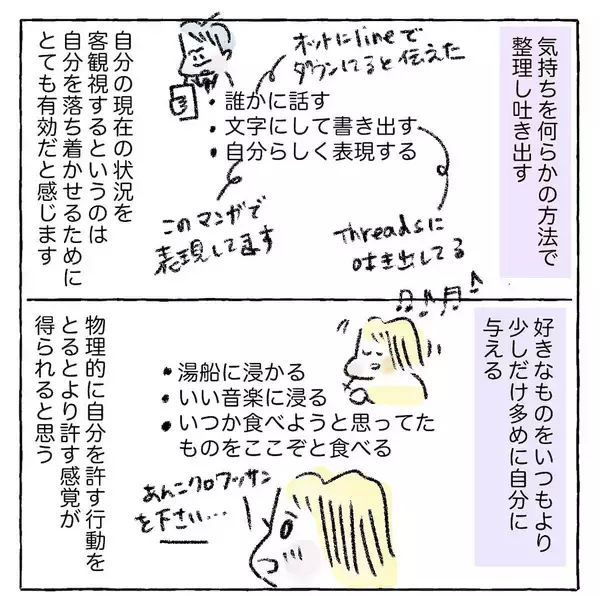 気持ちを何らかの方法で
整理し吐き出す
オットにlineで
ダウンしてると伝えた
・誰かに話す
・文字にして書き出す
・自分らしく表現する
このマンガで
表現してます
threadsに
吐き出してる
自分の現在の状況を
客観視するというのは
自分を落ち着かせるために
とても有効だと感じます
好きなものをいつもより
少しだけ多めに自分に
与える
・湯船に浸かる
・いい音楽に浸る
・いつか食べようと思ってた
ものをここぞと食べる
あんこクロワッサン
を下さい…
物理的に自分を許す行動を
とるとより許す感覚が
得られると思う